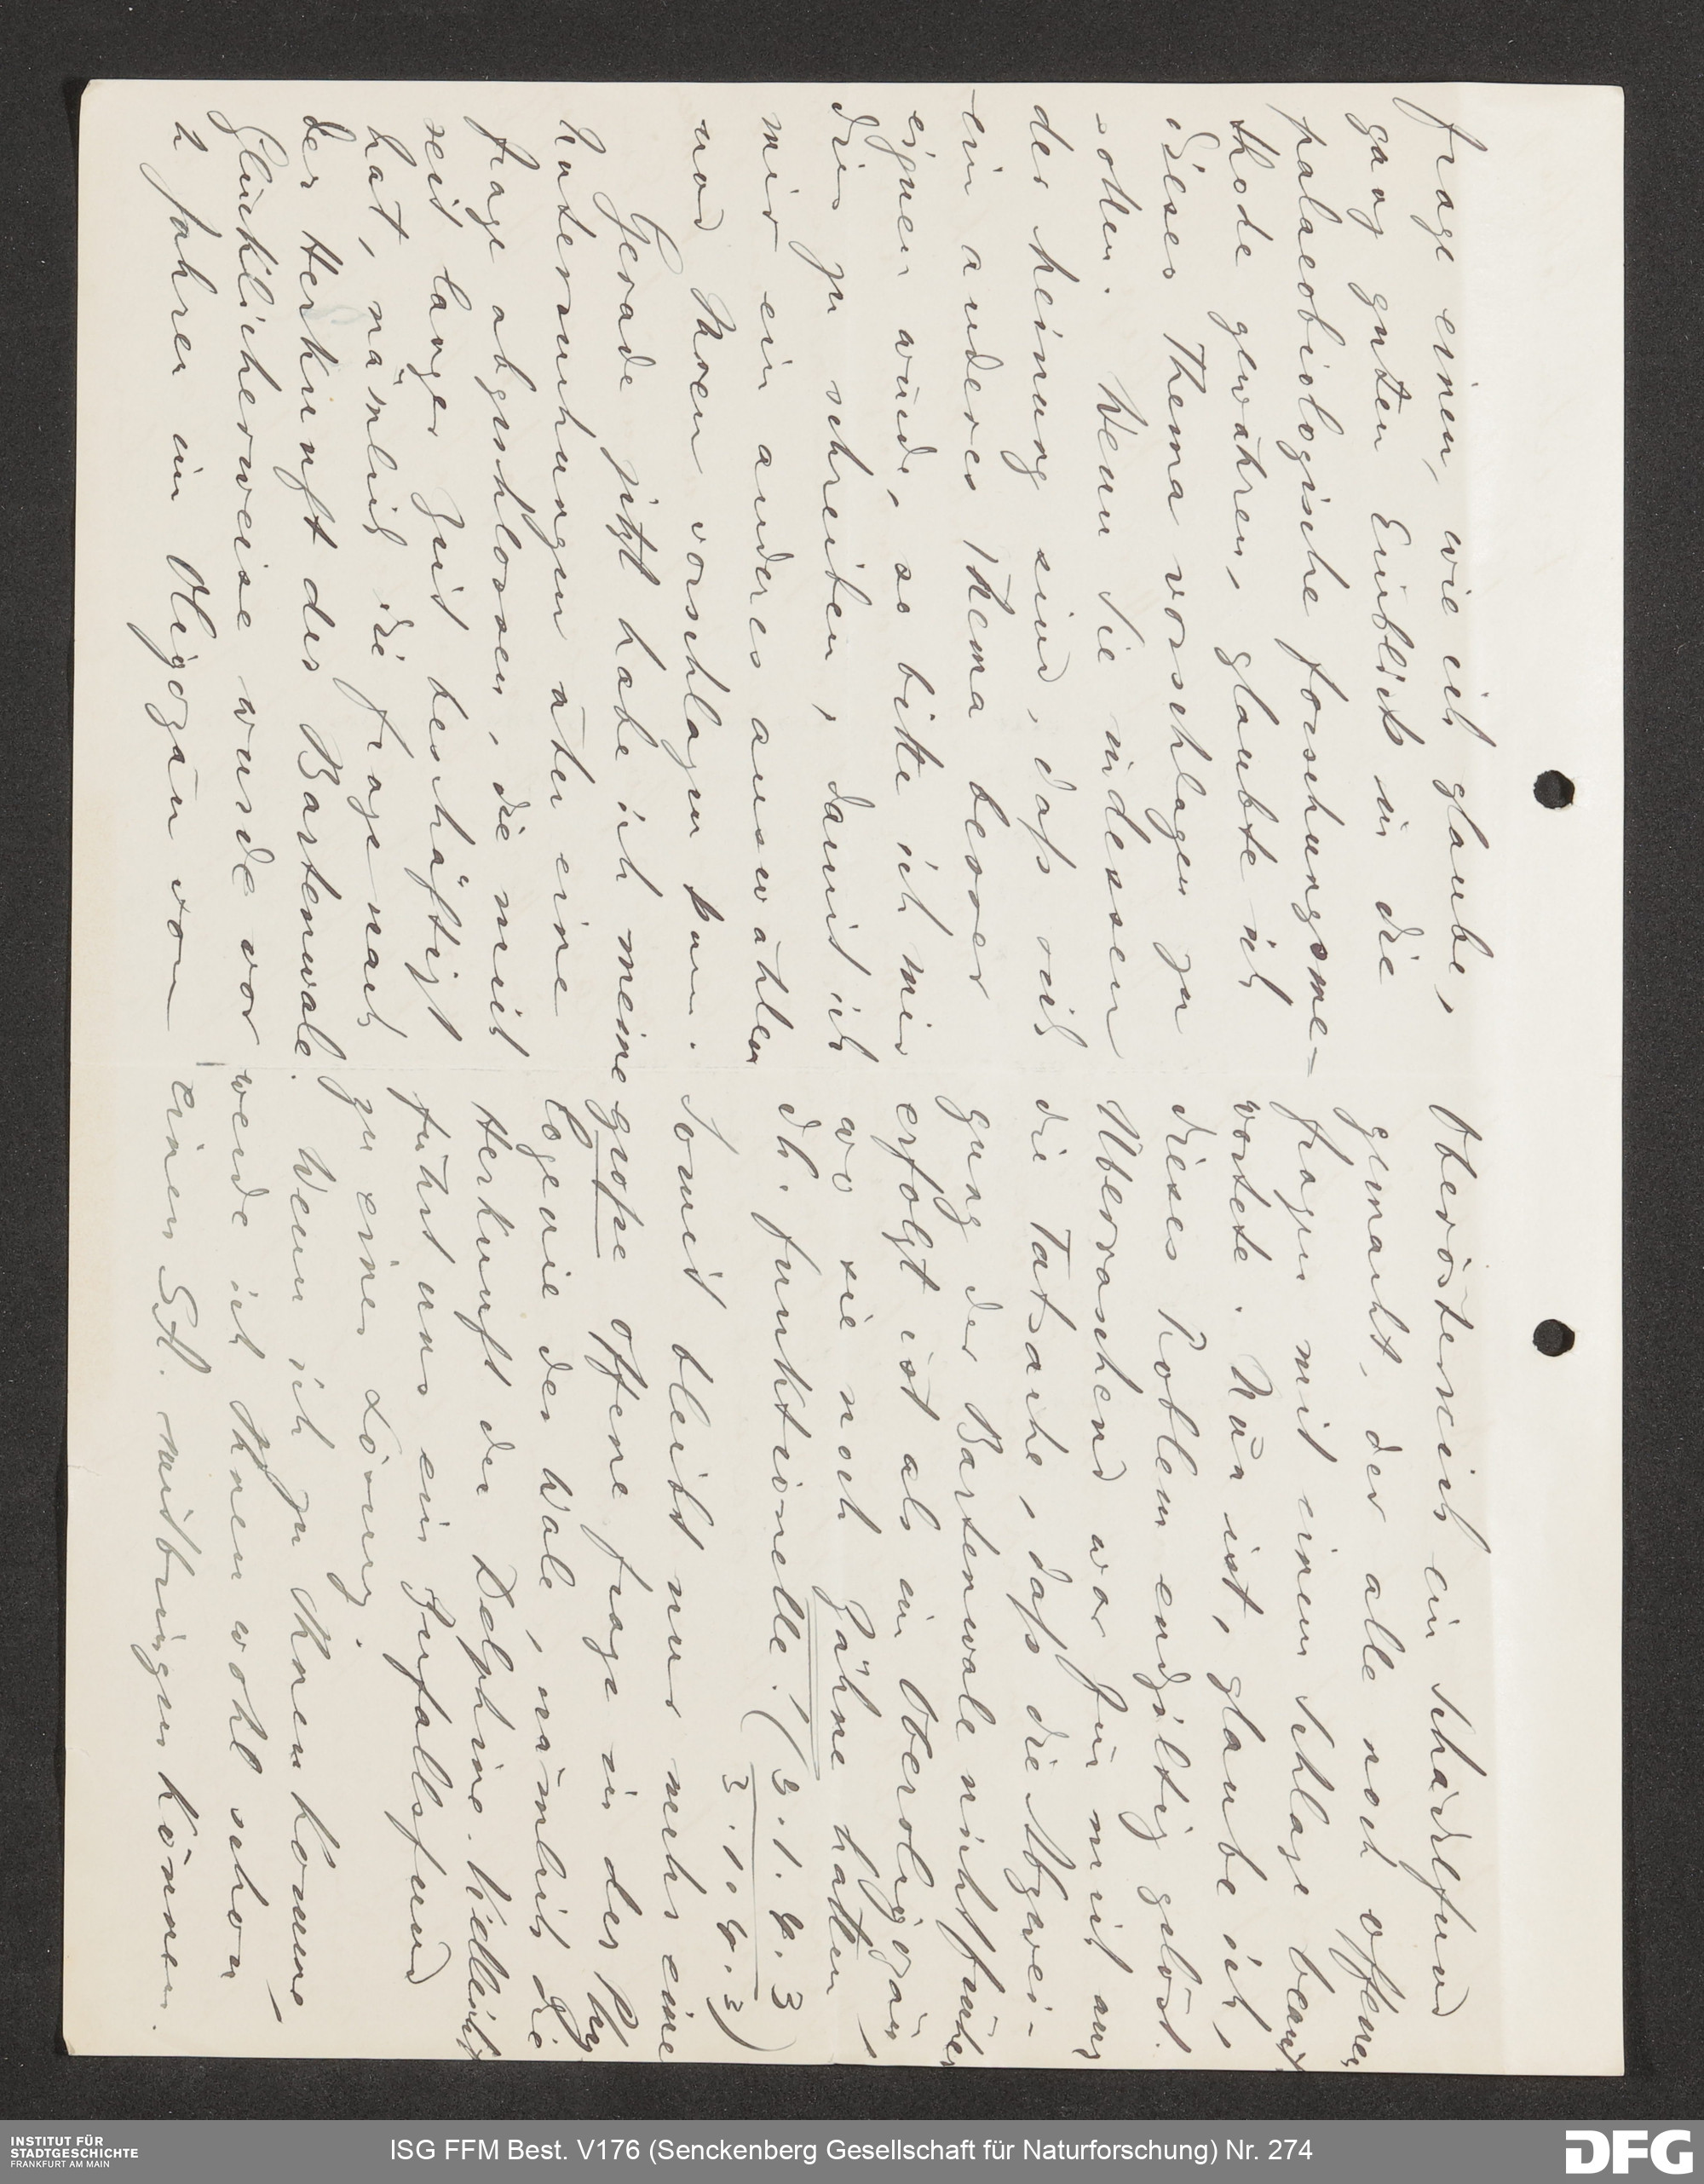 Frage einen, wie ich glaube,
ganz guten Einblick in die
palaeobiologische Forschungsme-
thode gewähren, glaubte ich
dieses Thema vorschlagen zu
sollen. Wenn Sie indessen
der Meinung sind, daß sich
ein anderes Thema besser
eignen würde, so bitte ich mir
dies zu schreiben, damit ich
mir ein anderes auswählen
und Ihnen vorschlagen kann.
Gerade jetzt habe ich meine
Untersuchungen über eine
Frage abgeschlossen, die mich
seit langer Zeit beschäftigt
hat, nämlich die Frage nach
der Herkunft der Bartenwale.
Glücklicherweise wurde vor
2 Jahren im Oligozän von
Oberösterreich ein Schädelfund
gemacht, der alle noch offenen
Fragen mit einem Schlage beant-
wortete. Nun ist, glaube ich,
dieses Problem endgiltig gelöst.
Überraschend war für mich nur
die Tatsache, daß die Abzwei-
gung der Bartenwale nicht früher
erfolgt ist als im Oberoligozän,
wo sie noch Zähne hatten,
dh. funktionelle! (3.1.4.3
3.1.4.3)
Somit bleibt nur mehr eine
große offene Frage in der Phy
logenie der Wale, nämlich die
Herkunft der Delphine. Vielleicht
führt uns ein Zufallsfund
zu einer Lösung.
Wenn ich zu Ihnen komme,
werde ich Ihnen wohl schon
einen S.A. mitbringen können.
INSTITUT FÜR
STADTGESCHICHTE
FRANKFURT AM MAIN
ISG FFM Best. V176 (Senckenberg Gesellschaft für Naturforschung) Nr. 274
DFG